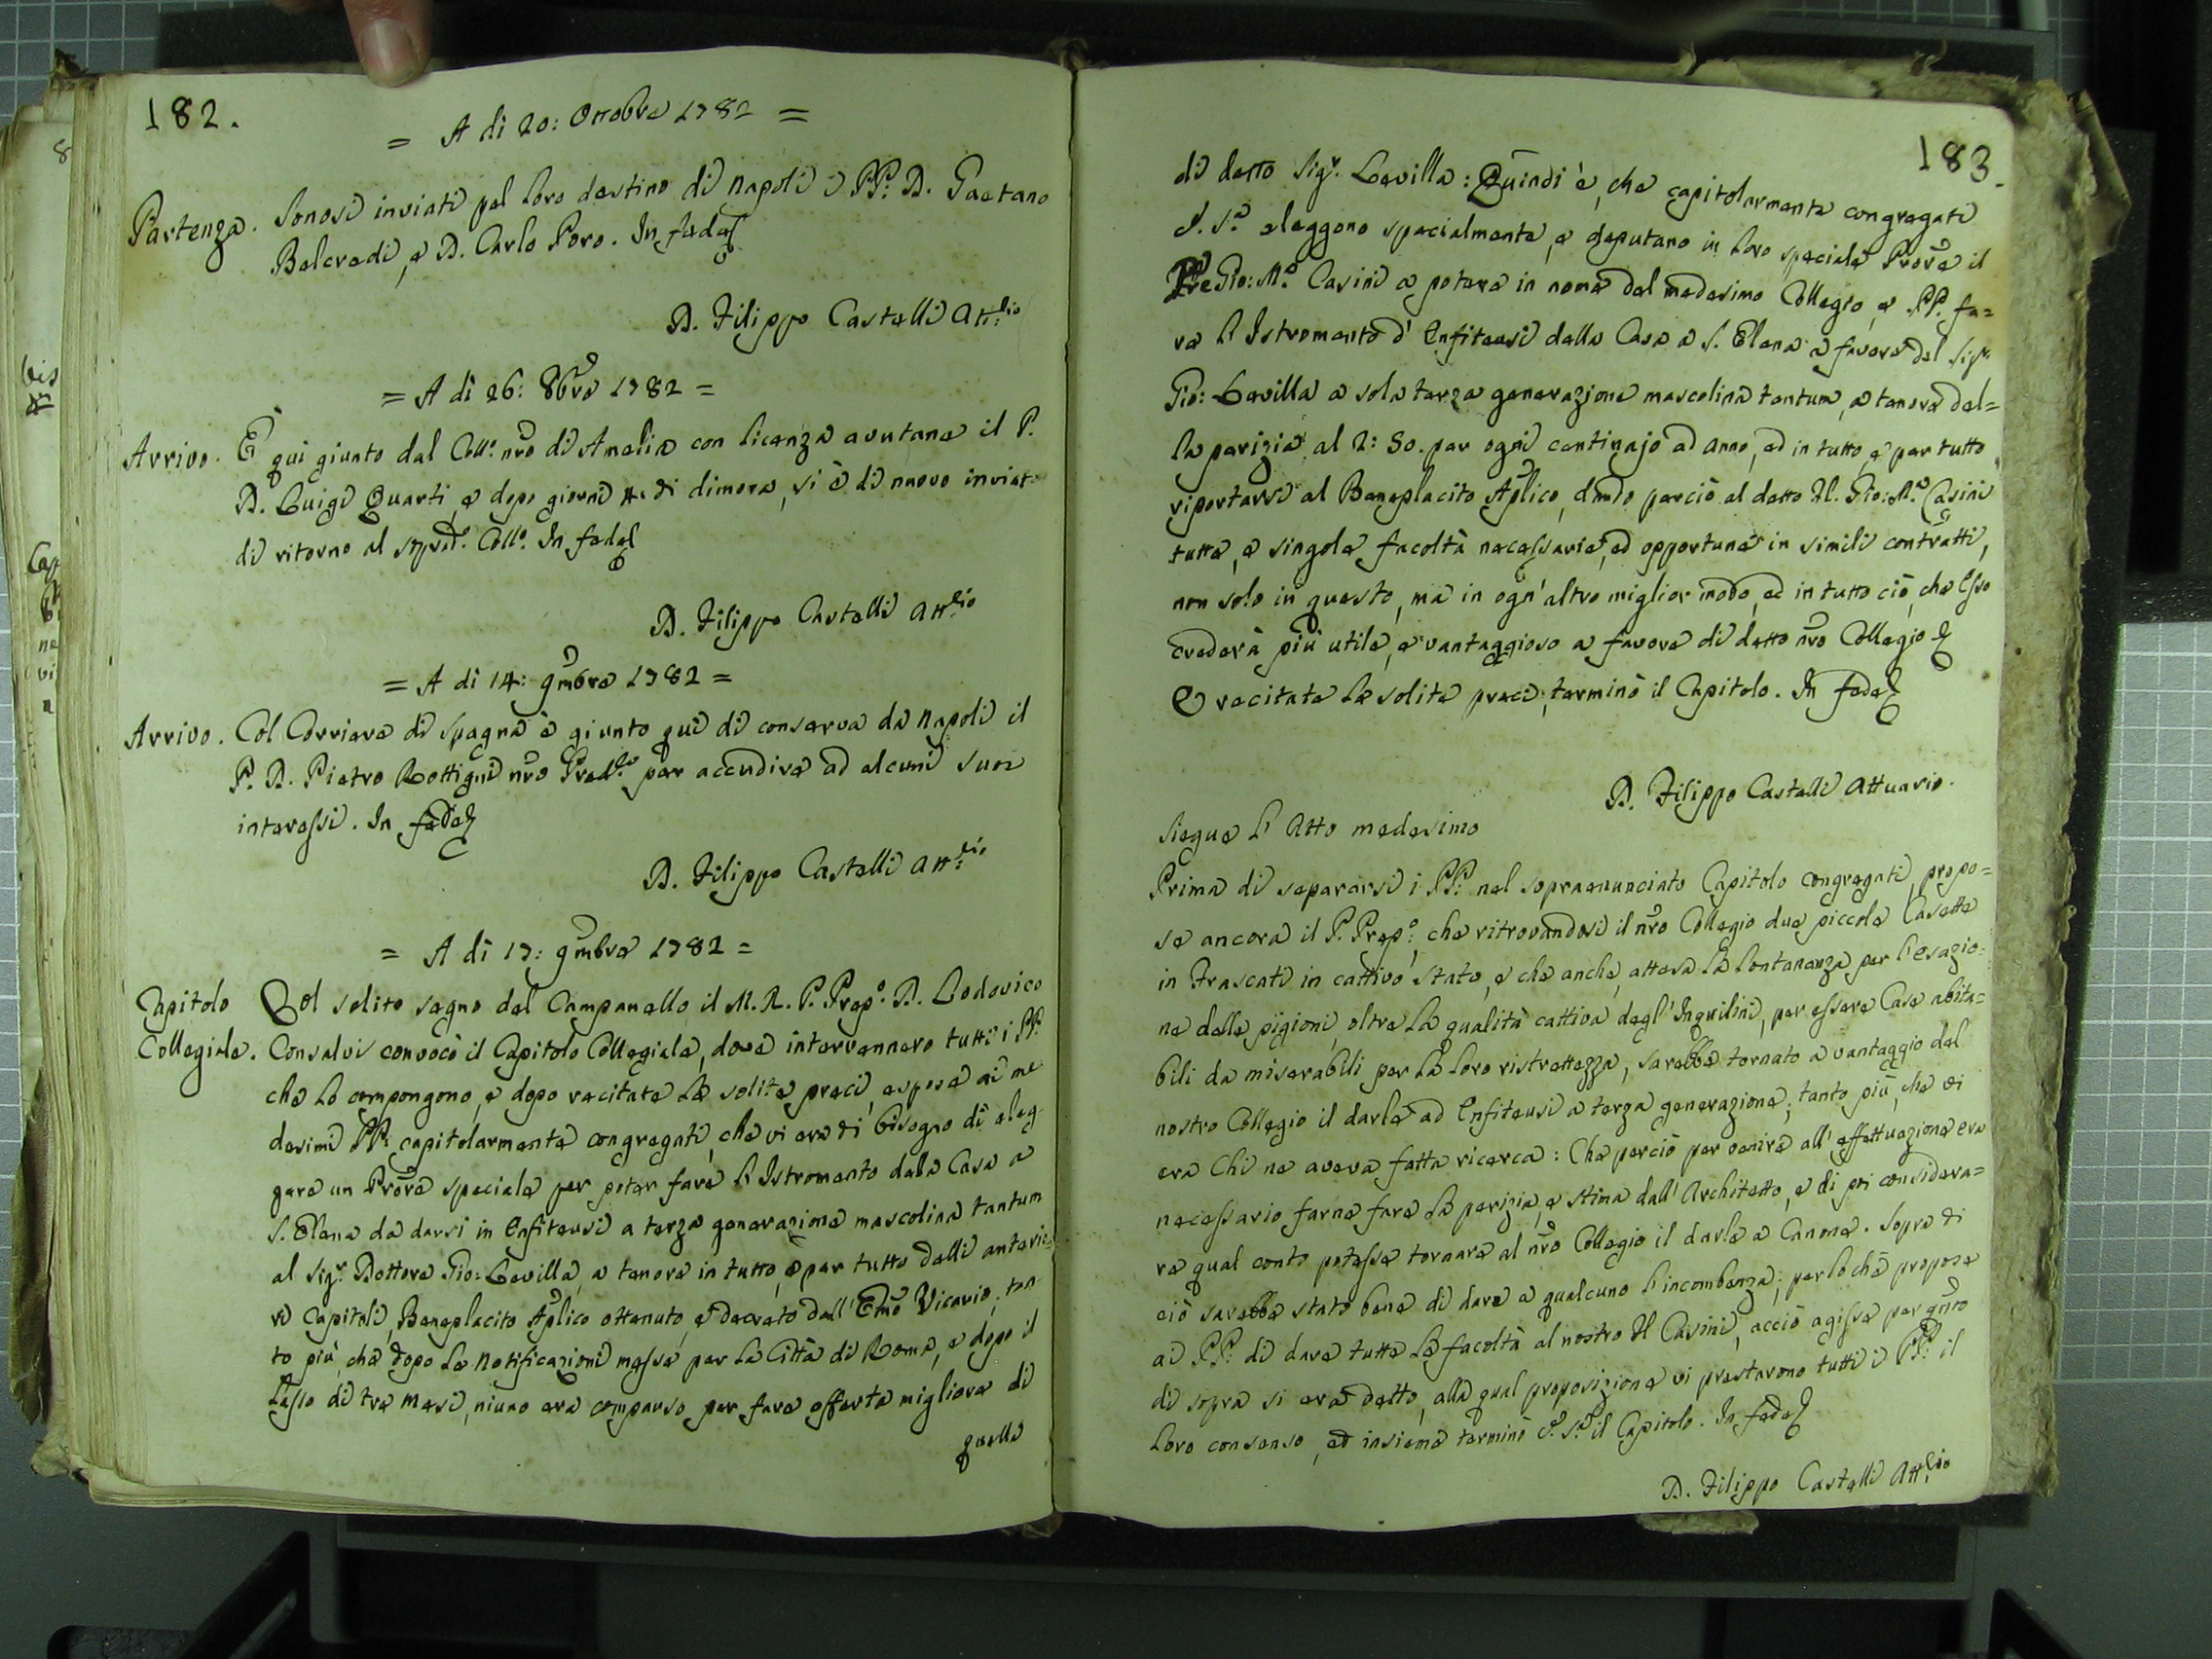 182.
= A di 20: Ottobre 1782 =
Partenza. Sonosi inviati pel loro destino di Napoli i PP: D. Gaetano
Belcredi, e D. Carlo Poro. In fede
D. Filippo Castelli Att:rio
= A di 26: 8bre 1782 =
Arrivo. È qui giunto dal Coll:o nro di Amelia con licenza avutane il P.
D. Luigi Quarti, e dopo giorni 4. di dimora, si è di nuovo inviato
di ritorno al sopradº. Collº. In fede
D. Filippo Castelli Att:rio
= A di 14: 9mbre 1782 =
Arrivo. Col Corriere di Spagna è giunto qui di conserva da Napoli il
P. D. Pietro Rottigni nro per accudire ad alcuni suoi
interessi. In fede
D. Filippo Castelli Att:rio
= A di 17: 9mbre 1782 =
Capitolo Col solito segno del Campanello il M. R. P. Prepº. D. Lodovico
Collegiale. Consalvi convocò il Capitolo Collegiale, dove intervennero tutti i PP.
che lo compongono, e dopo recitate le solite preci, espose ai me
desimi PP: capitolarmente congregati, che vi era di bisogno di eleg
gere un Prore speciale per poter fare l'Istromento della Casa a
S. Elena da darsi in Enfiteusi a terza generazione mascolina tantum
al Sigr. Dottore Gio: Lavilla, a tenore in tutto, e per tutto delli anterio
ri Capitoli, Beneplacito Aplico ottenuto, e decreto dell' Emo Vicario; tan
to più, che dopo le Notificazioni messe per la Città di Roma, e dopo il
lasso di tre mesi, niuno era comparso per fare offerta migliore di
quella
183.
di detto Sigr. Lavilla: Quindi è, che capitolarmente congregati
eleggono specialmente, e deputano in loro speciale Prore il
Gio: Mª. Casini a potere in nome del medesimo Collegio, e PP. fa=
re l'Istromento d' Enfiteusi della Casa a S. Elena a favore del Sigr
Gio: Lavilla a sola terza generazione mascolina tantum, a tenore del=
la perizia al 2: 50. per ogni centinajo ad anno, ed in tutto, e per tutto
riportarsi al Beneplacito Aplico, dando perciò al detto Gio: Mª. Casini
tutte, e singole facoltà necessarie, ed opportune in simili contratti,
non solo in questo, ma in ogn' altro miglior modo, ed in tutto ciò, che Esso
crederà più utile, e vantaggioso a favore di detto nro Collegio
E recitate le solite preci, terminò il Capitolo. In fede
D. Filippo Castelli Attuario.
Siegue l' Atto medesimo
Prima di separarsi i PP: nel sopraenunciato Capitolo congregati, propo=
se ancora il P. Prepº:, che ritrovandosi il nro Collegio due piccole Casette
in Frascati in cattivo stato, e che anche, attesa la lontananza per l'esazio=
ne delle pigioni, oltre la qualità cattiva degl' Inquilini, per essere Case abita=
bili da miserabili per la loro ristrettezza, sarebbe tornato a vantaggio del
nostro Collegio il darle ad Enfiteusi a terza generazione; tanto più, che vi
era Chi ne aveva fatta ricerca: Che perciò per venire all' effettuazione era
necessario farne fare la perizia, e stima dall' Architetto, e di poi considera=
re qual conto potesse tornare al nro Collegio il darle a Canone. Sopra di
ciò sarebbe stato bene di dare a qualcuno l'incombenza; perlochè propose
ai PP: di dare tutte le facoltà al nostro Casini, acciò agisse per qnto
di sopra si era detto, alla qual proposizione vi prestarono tutti i PP: il
loro consenso, ed insieme terminò il Capitolo. In fede
D. Filippo Castelli Att:rio